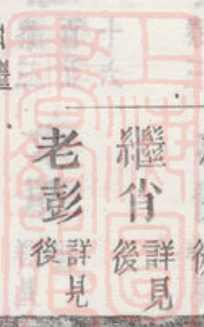 繼肯詳見後
老彭詳見後